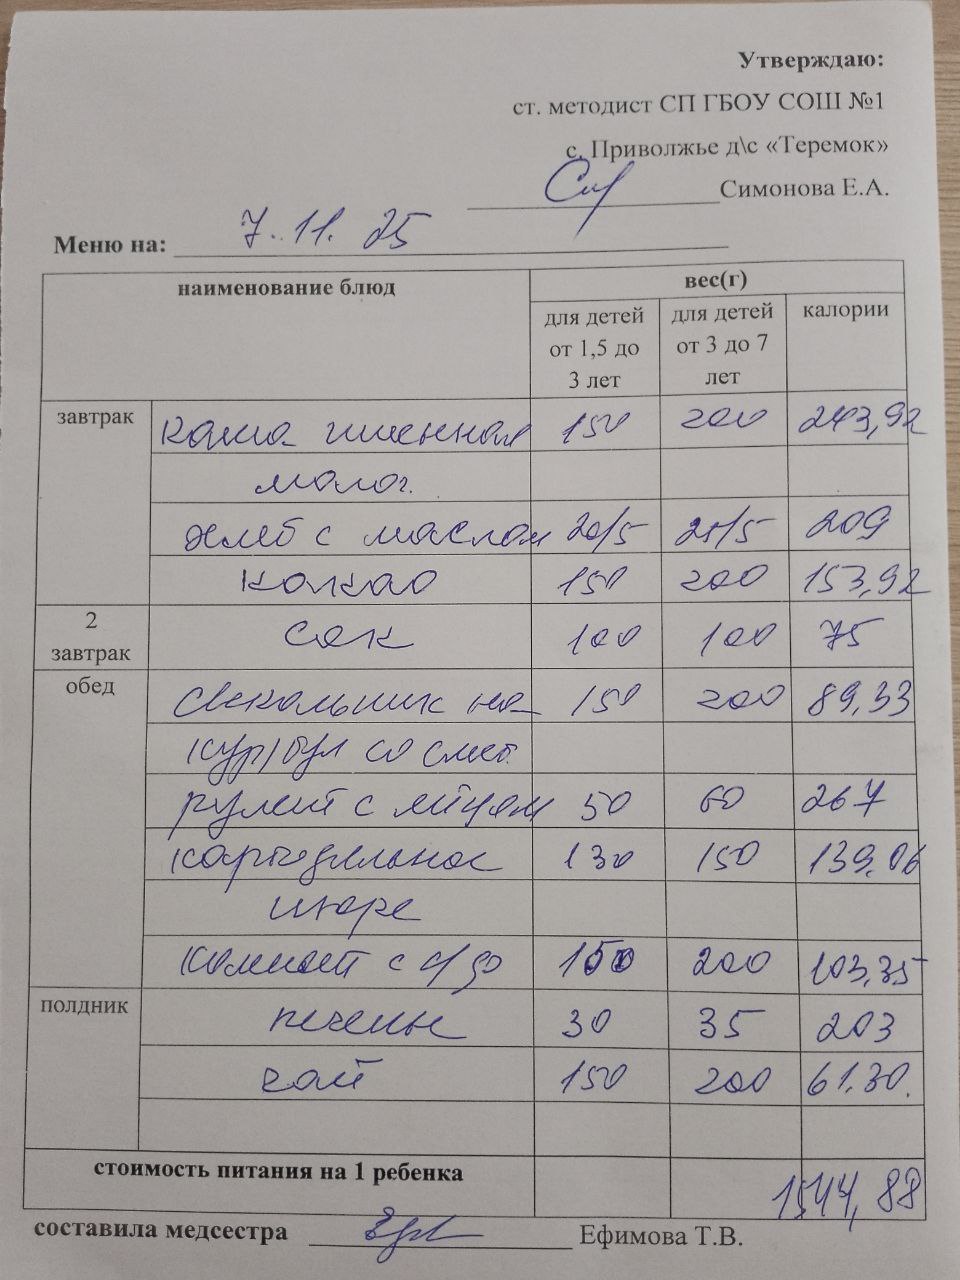 Утверждаю:
ст. методист СП ГБОУ СОШ №1
с. Приволжье д\с «Теремок»
Симонова Е.А.
Меню на: 7.11.25
наименование блюд вес(г)
для детей от 1,5 до 3 лет для детей от 3 до 7 лет калории
завтрак каша пшенная 150 200 243,92
молоч.
хлеб с маслом 20/5 25/5 209
какао 150 200 153,92
2 завтрак сок 100 100 75
обед свекольник на 150 200 89,33
кур/бул со смет.
рулет с яйцом 50 60 267
картофельное 130 150 139,06
пюре
компот с с/ф 150 200 103,35
полдник печенье 30 35 203
чай 150 200 61.30.
стоимость питания на 1 ребенка 1544,88
составила медсестра Ефимова Т.В.